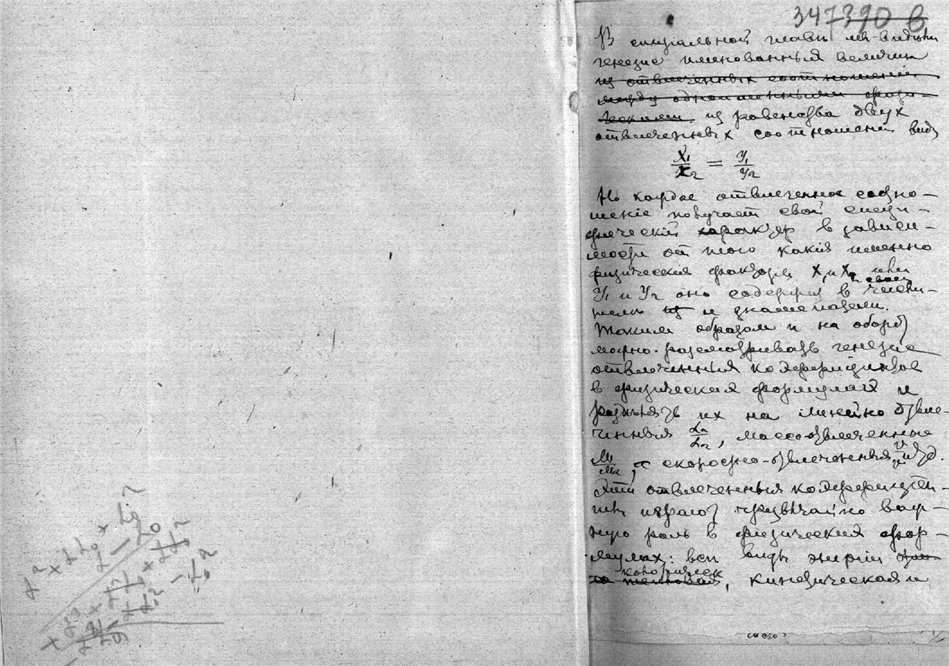 347390 В
В специальной главе мы видели
генезис именованных величин
из отвлеченных соотношений
между одноименными
из равенства двух
отвлеченных соотношений вида
X₁/X₂ = Y₁/Y₂
Но каждое отвлеченное соотно-
шение получает свой специ-
фический характер в зависи-
мости от того какия именно
физическия факторы X₁ и X₂ или
Y₁ и Y₂ оно содержит в числи-
теле и знаменателе.
Таким образом и на оборот
можно рассматривать генезис
отвлеченных коэффициентов
в физических формулах и
разделять их на линейно отвле-
ченныя L₁/L₂, массо-отвлеченные
M/M₂, скоростно-отвлеченныя и т.д.
Эти отвлеченныя коэффициен-
ты играют чрезвычайно важ-
ную роль в физических фор-
мулах: все виды энергии
тепловая, кинетическая и